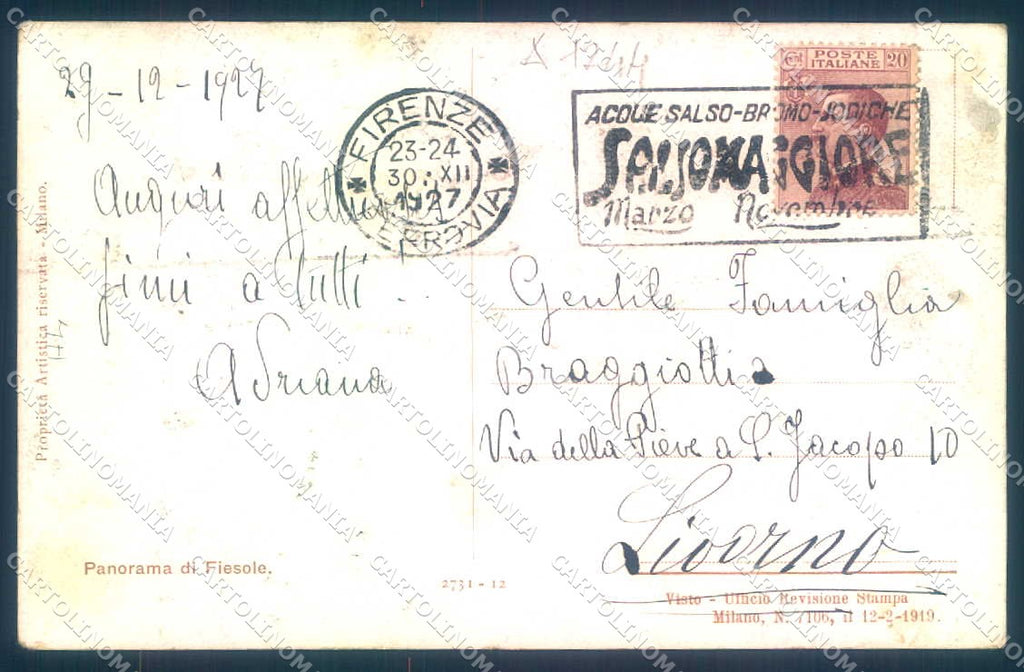 29-12-1927
Auguri affettuosis
simi a tutti!
Adriana
Proprietà Artistica riservata - Milano.
Panorama di Fiesole.
2731 - 12
FIRENZE
23-24
30·XII
1927
FERROVIA
POSTE ITALIANE
Ct 20
ACQUE SALSO-BROMO-JODICHE
SALSOMAGGIORE
Marzo Novembre
Gentile Famiglia
Braggiotti
Via della Pieve a S. Jacopo 10
Livorno
Visto - Ufficio Revisione Stampa
Milano, N. 7106, il 12-2-1919.
CARTOLINOMANIA